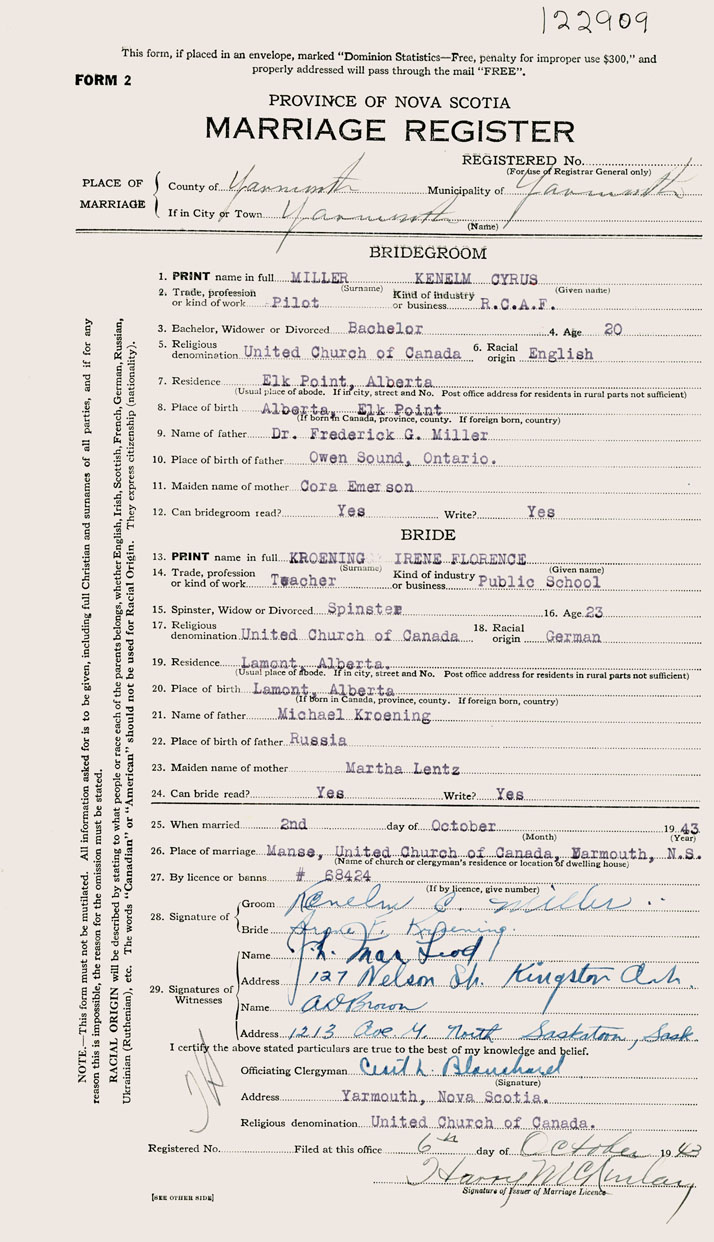 122909
This form, if placed in an envelope, marked “Dominion Statistics—Free, penalty for improper use $300,” and
properly addressed will pass through the mail “FREE”.
FORM 2
PROVINCE OF NOVA SCOTIA
MARRIAGE REGISTER
REGISTERED No.
(For use of Registrar General only)
PLACE OF MARRIAGE
County of Yarmouth Municipality of Yarmouth
If in City or Town Yarmouth
(Name)
BRIDEGROOM
1. PRINT name in full MILLER KENELM CYRUS
(Surname) (Given name)
2. Trade, profession or kind of work Pilot Kind of industry or business R.C.A.F.
3. Bachelor, Widower or Divorced Bachelor 4. Age 20
5. Religious denomination United Church of Canada 6. Racial origin English
7. Residence Elk Point, Alberta
(Usual place of abode. If in city, street and No. Post office address for residents in rural parts not sufficient)
8. Place of birth Alberta, Elk Point
(If born in Canada, province, county. If foreign born, country)
9. Name of father Dr. Frederick G. Miller
10. Place of birth of father Owen Sound, Ontario.
11. Maiden name of mother Cora Emerson
12. Can bridegroom read? Yes Write? Yes
BRIDE
13. PRINT name in full KROENING IRENE FLORENCE
(Surname) (Given name)
14. Trade, profession or kind of work Teacher Kind of industry or business Public School
15. Spinster, Widow or Divorced Spinster 16. Age 23
17. Religious denomination United Church of Canada 18. Racial origin German
19. Residence Lamont, Alberta.
(Usual place of abode. If in city, street and No. Post office address for residents in rural parts not sufficient)
20. Place of birth Lamont, Alberta
(If born in Canada, province, county. If foreign born, country)
21. Name of father Michael Kroening
22. Place of birth of father Russia
23. Maiden name of mother Martha Lentz
24. Can bride read? Yes Write? Yes
25. When married 2nd day of October 1943
(Month) (Year)
26. Place of marriage Manse, United Church of Canada, Yarmouth, N.S.
(Name of church or clergyman's residence or location of dwelling house)
27. By licence or banns # 68424
(If by licence, give number)
28. Signature of
Groom Kenelm C. Miller
Bride Irene F. Kroening.
29. Signatures of Witnesses
Name MacLeod
Address 127 Nelson St. Kingston Ont.
Name A D Brown
Address 1213 Ave M. North Saskatoon, Sask.
I certify the above stated particulars are true to the best of my knowledge and belief.
Officiating Clergyman Cecil L. Blanchard
(Signature)
Address Yarmouth, Nova Scotia.
Religious denomination United Church of Canada.
Registered No. Filed at this office 6th day of October 1943
Harry McKinlay
Signature of Issuer of Marriage Licence
[SEE OTHER SIDE]
NOTE.—This form must not be mutilated. All information asked for is to be given, including full Christian and surnames of all parties, and if for any
reason this is impossible, the reason for the omission must be stated.
RACIAL ORIGIN will be described by stating to what people or race each of the parents belongs, whether English, Irish, Scottish, French, German, Russian,
Ukrainian (Ruthenian), etc. The words “Canadian” or “American” should not be used for Racial Origin. They express citizenship (nationality).